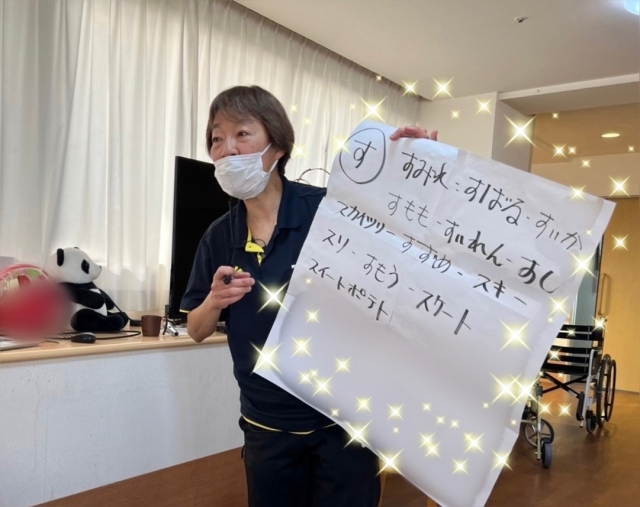 す
すみ火・すばる・すいか
すもも・すいれん・すし
スカイツリー すずめ・スキー
スリ・すもう・スケート
スイートポテト